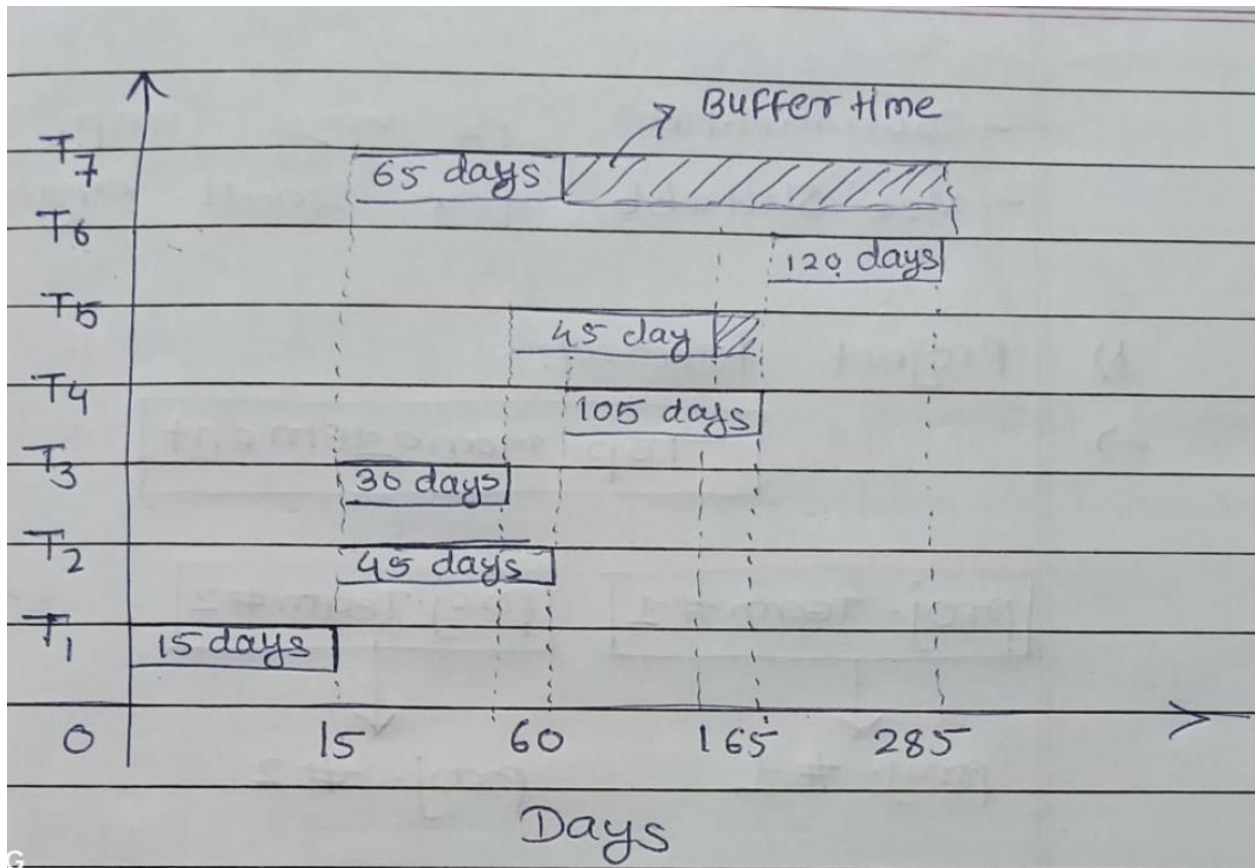 Buffer time
T7 65 days
T6 120 days
T5 45 day
T4 105 days
T3 30 days
T2 45 days
T1 15 days
0 15 60 165 285
Days
G